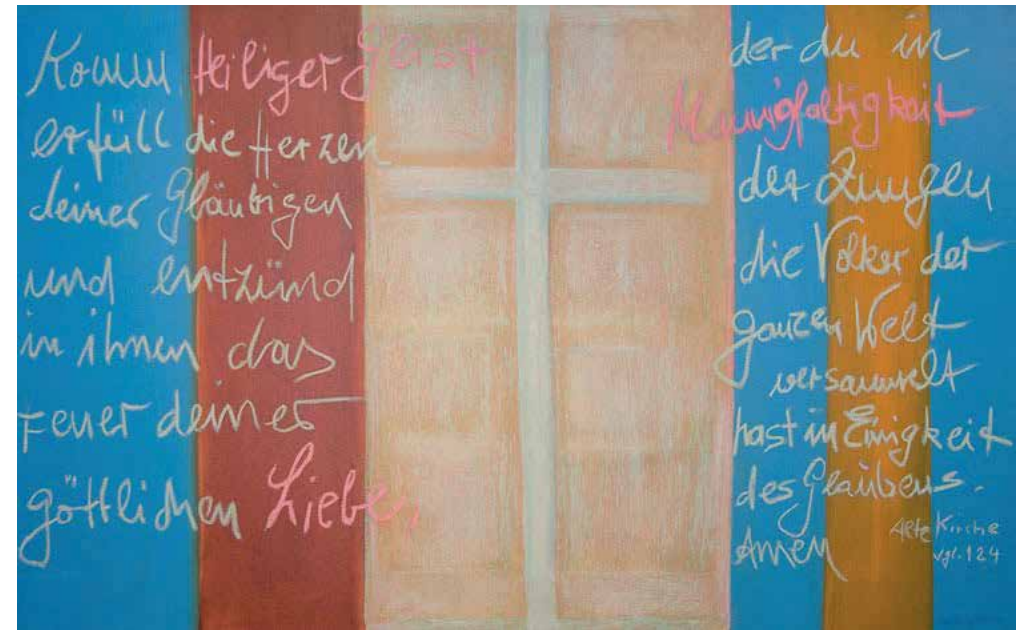 Komm Heiliger Geist
erfüll die Herzen
deiner Gläubigen
und entzünd
in ihnen das
Feuer deiner
göttlichen Liebe,
der du in
Mannigfaltigkeit
der Zungen
die Völker der
ganzen Welt
versammelt
hast in Einigkeit
des Glaubens.
Amen
Alte Kirche
vgl. 124